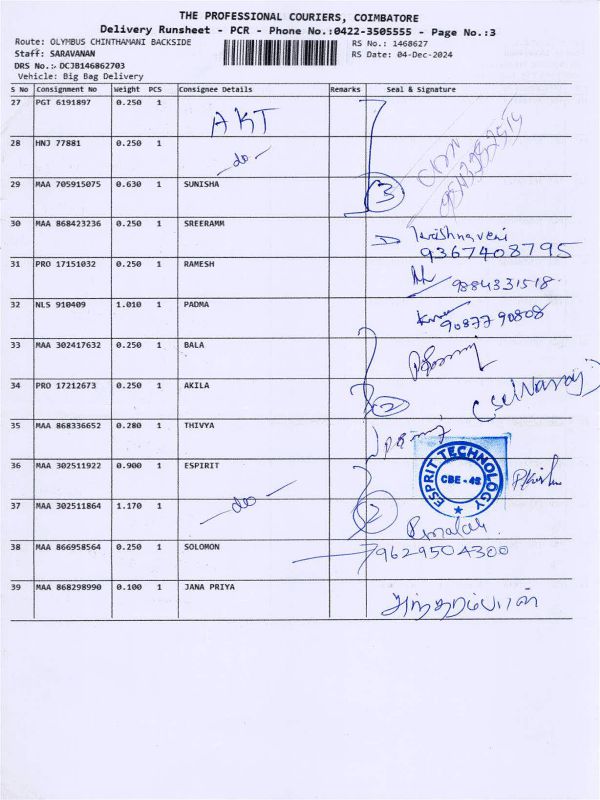 THE PROFESSIONAL COURIERS, COIMBATORE
Delivery Runsheet - PCR - Phone No.:0422-3505555 - Page No.:3
Route: OLYMBUS CHINTHAMANI BACKSIDE RS No.: 1468627
Staff: SARAVANAN RS Date: 04-Dec-2024
DRS No.:- DCJB146862703
Vehicle: Big Bag Delivery
S No Consignment No Weight PCS Consignee Details Remarks Seal & Signature
27 PGT 6191897 0.250 1 AKT
28 HNJ 77881 0.250 1 -do-
29 MAA 705915075 0.630 1 SUNISHA 3
30 MAA 868423236 0.250 1 SREERAMM Krishnaveni
9367408795
31 PRO 17151032 0.250 1 RAMESH 9884331518
32 NLS 910409 1.010 1 PADMA 9087790808
33 MAA 302417632 0.250 1 BALA
34 PRO 17212673 0.250 1 AKILA 2 Selvaraj
35 MAA 868336652 0.280 1 THIVYA
36 MAA 302511922 0.900 1 ESPIRIT
ESPRIT TECHNOLOGY
CBE - 48
37 MAA 302511864 1.170 1 -do- 2
38 MAA 866958564 0.250 1 SOLOMON 9629504300
39 MAA 868298990 0.100 1 JANA PRIYA